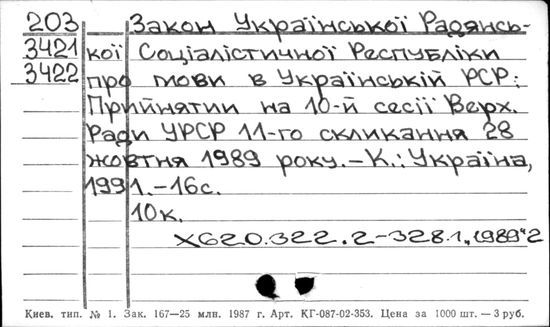 203 Закон Української Радянсь-
3421 кої Соціалістичної Республіки
3422 про мови в Українській РСР:
Прийнятий на 10-й сесії Верх.
Ради УРСР 11-го скликання 28
жовтня 1989 року.-К.: Україна,
1991.-16с.
10к.
Х620.322.2-328.1,"1989"2
Киев. тип. № 1. Зак. 167—25 млн. 1987 г. Арт. КГ-087-02-353. Цена за 1000 шт. — 3 руб.